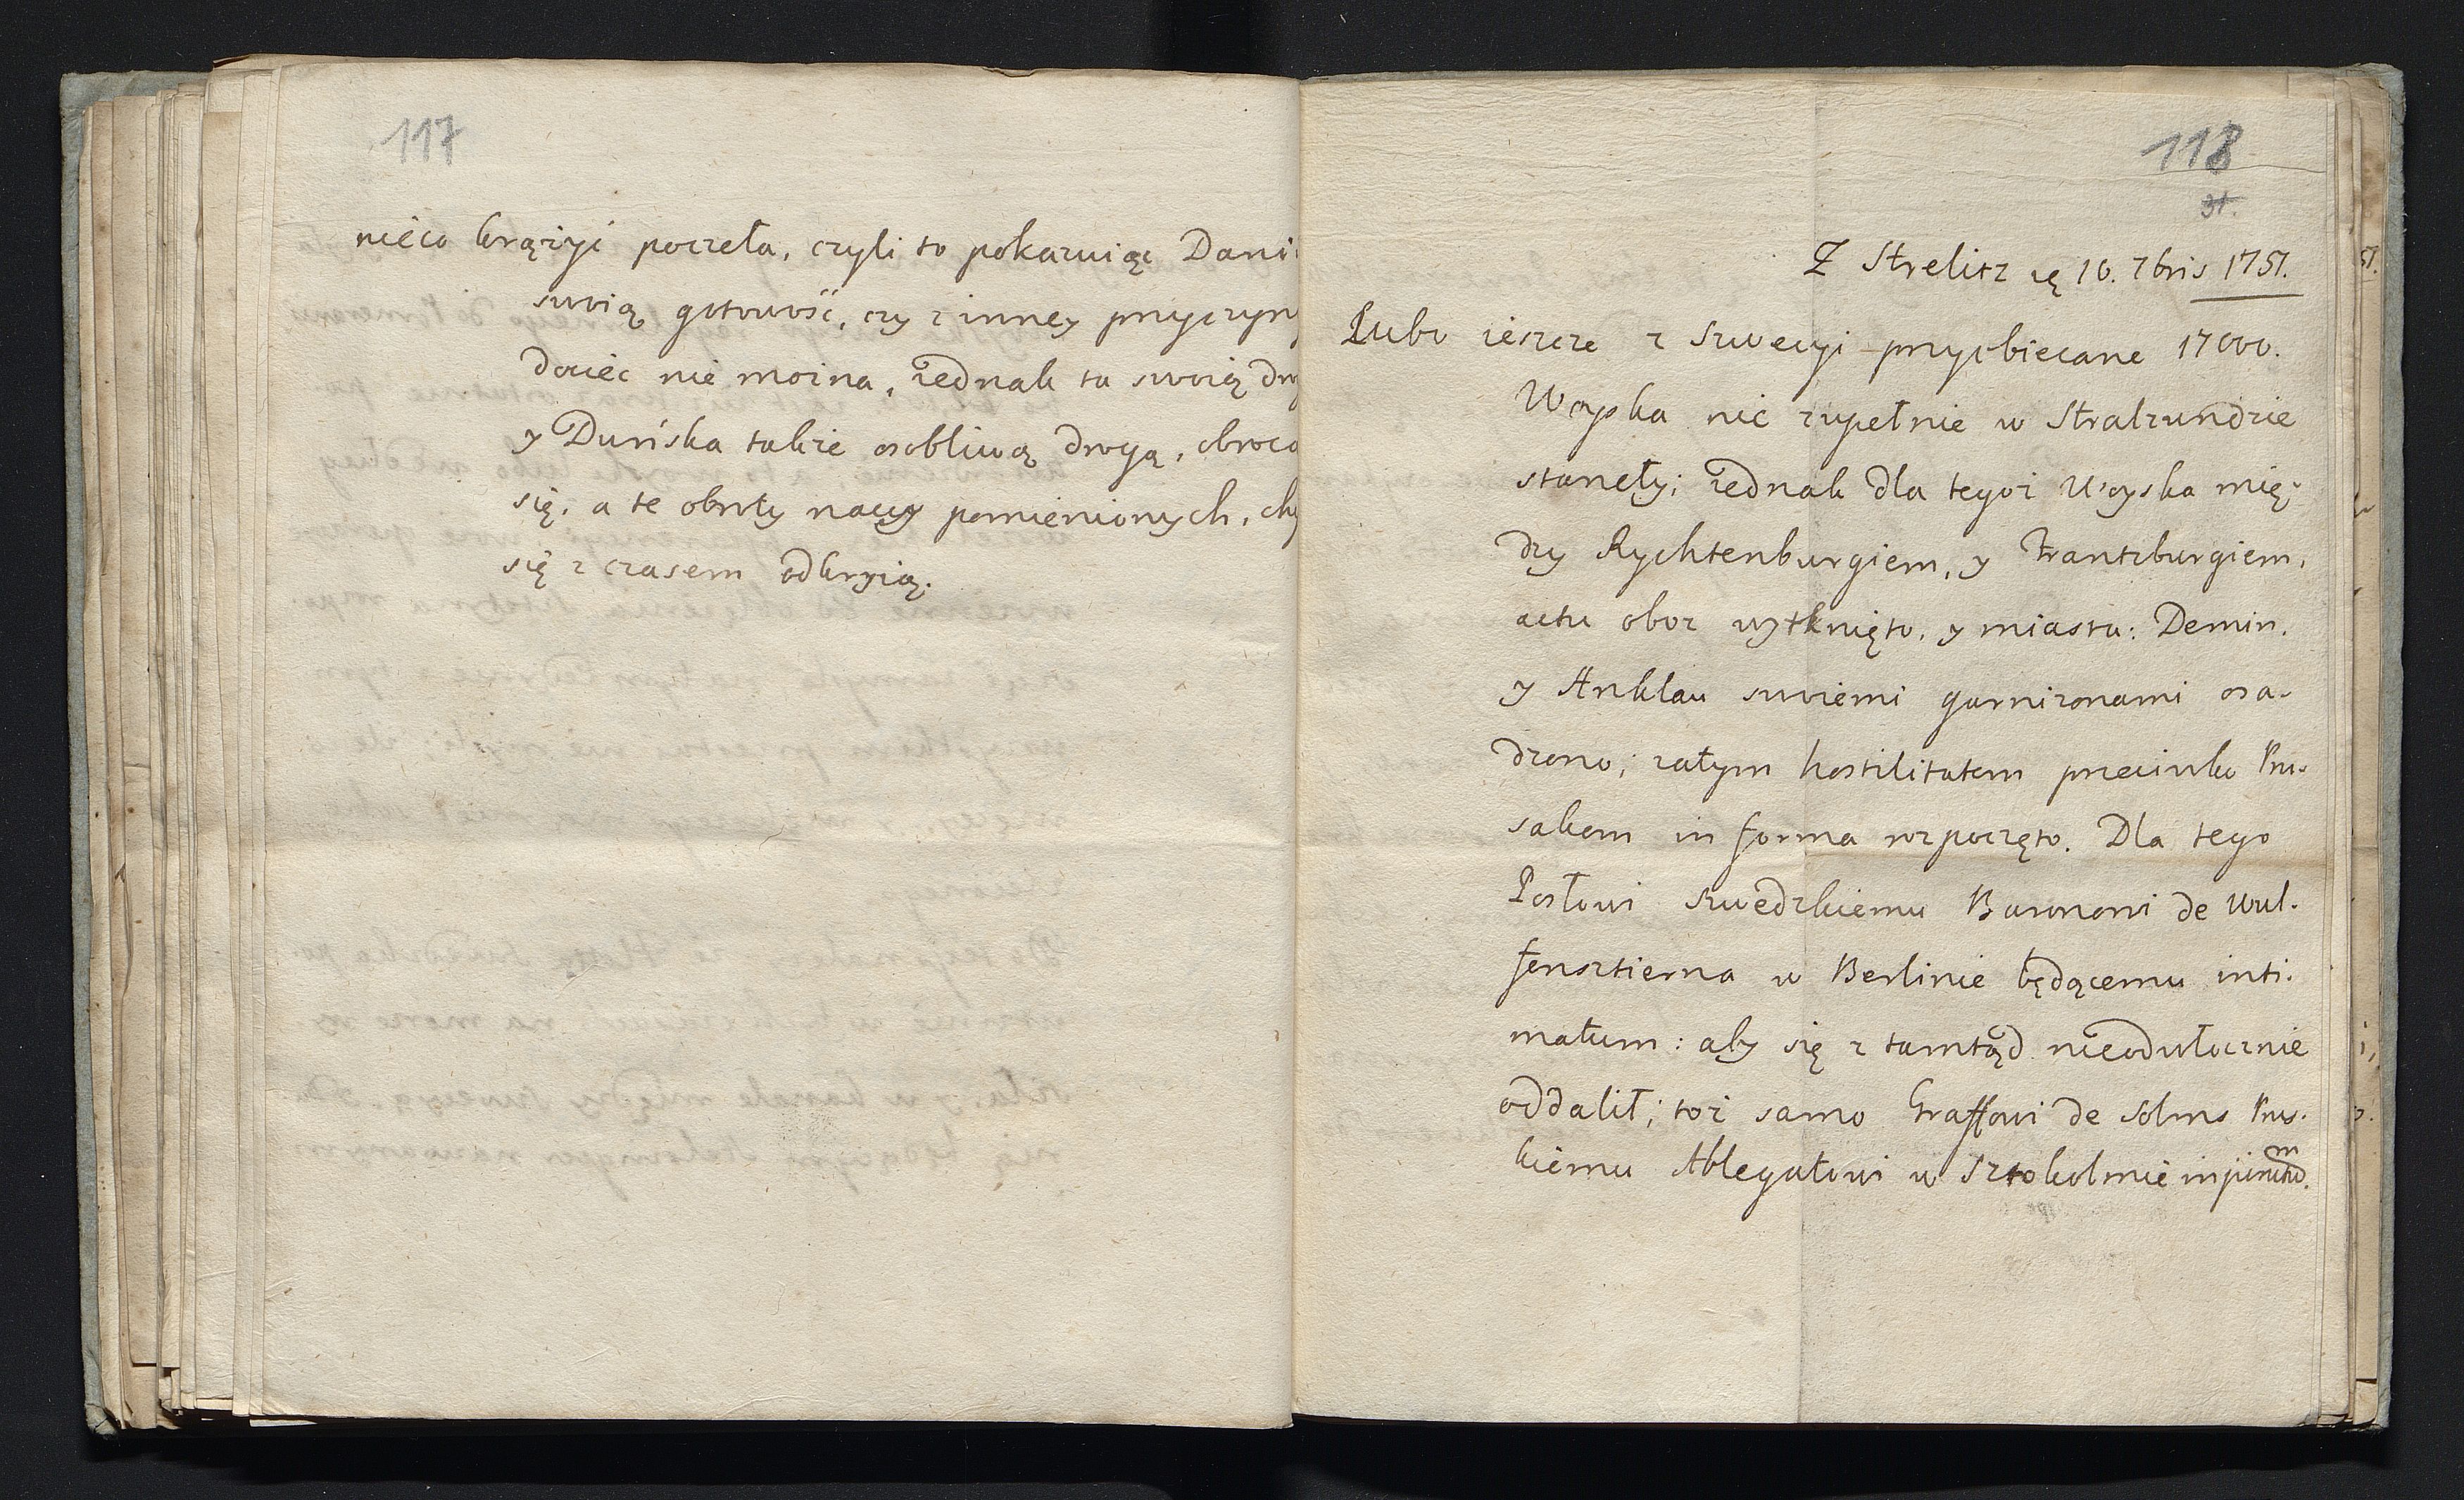 117
nieco krążyć poczeła, czyli to pokazuiąc Dani
swoią gotowość, czy z inney przyczyn
dociec nie można, iednak ta swoią dro
y Duńska także osobliwą drogą, obroca
się, a te obroty nacyy pomienionych, chy
się z czasem odkryią.
118
31.
Z Strelitz ą 10. 7bris 1757.
Lubo ieszcze z Szwecyi przyobiecane 17000.
Woyska nie zupełnie w Stralzundzie
staneły; iednak dla tegoż Woyska mię-
dzy Rychtenburgiem, y Frantzburgiem,
actu oboz wytknięto, y miasta: Demin,
y Anklau swoiemi garnizonami osa-
dzono; zatym hostilitatem przeciwko Pru-
sakom in forma rozpoczęto. Dla tego
Posłowi Szwedzkiemu Baronowi de Wul-
fensztierna w Berlinie będącemu inti-
matum: aby się z tamtąd nieodwłocznie
oddalił; toż samo Graffowi de Solms Prus-
kiemu Ablegatowi w Sztokolmie injunctum.